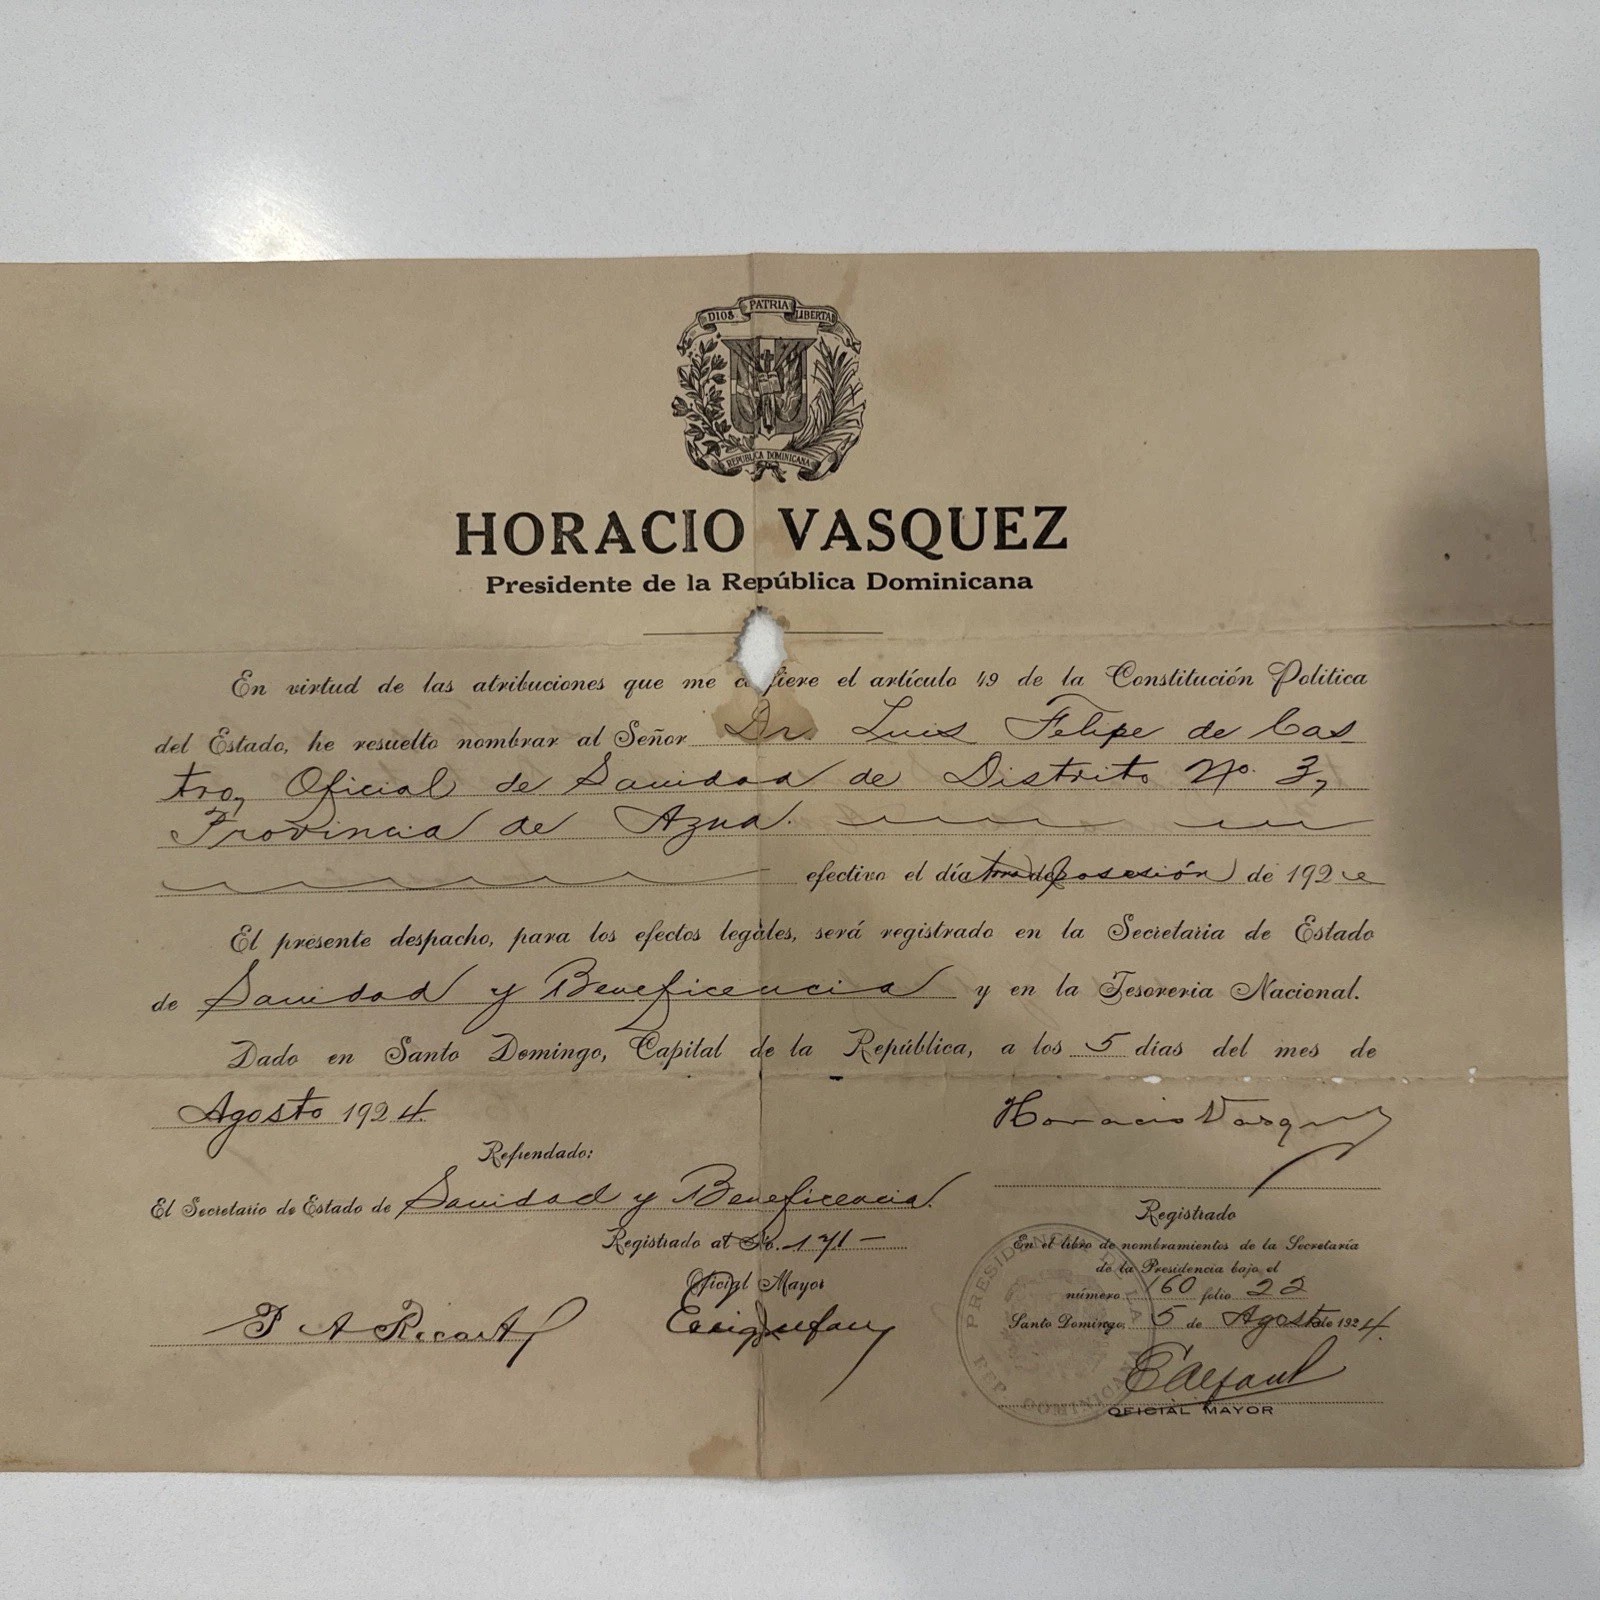 DIOS PATRIA LIBERTAD
REPUBLICA DOMINICANA
HORACIO VASQUEZ
Presidente de la República Dominicana
En virtud de las atribuciones que me c fiere el artículo 49 de la Constitución Politica
del Estado, he resuelto nombrar al Señor Dr. Luis Felipe de Cas
tro, Oficial de Sanidad de Distrito No. 3,
Provincia de Azua.
efectivo el día toma de posesión de 192
El presente despacho, para los efectos legales, será registrado en la Secretaria de Estado
de Sanidad y Beneficencia y en la Tesoreria Nacional.
Dado en Santo Domingo, Capital de la República, a los 5 días del mes de
Agosto 1924.
Horacio Vasquez
Refrendado:
El Secretario de Estado de Sanidad y Beneficencia.
Registrado al No. 171
Oficial Mayor
P A Ricart
Registrado
En el libro de nombramientos de la Secretaría
de la Presidencia bajo el
número 160 folio 22
Santo Domingo, 5 de Agosto de 1924.
OFICIAL MAYOR
PRESIDENCIA DE LA REP. DOMINICANA